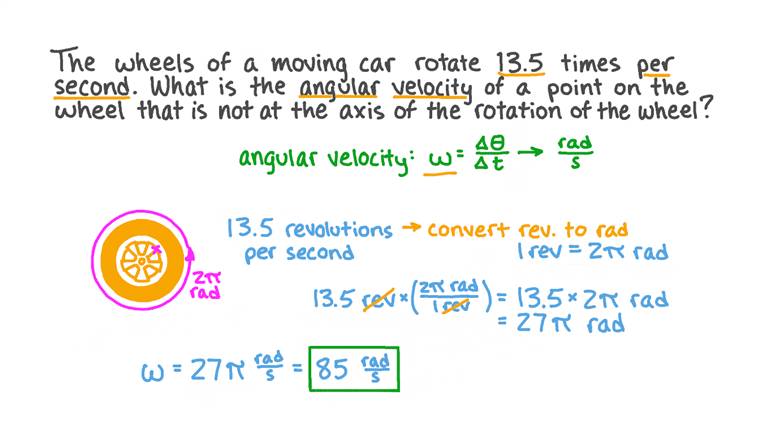 The wheels of a moving car rotate 13.5 times per
second. What is the angular velocity of a point on the
wheel that is not at the axis of the rotation of the wheel?
angular velocity: ω = Δθ/Δt → rad/s
13.5 revolutions → convert rev. to rad
per second 1 rev = 2π rad
2π
rad
13.5 rev × (2π rad/1 rev) = 13.5 × 2π rad
= 27π rad
ω = 27π rad/s = 85 rad/s